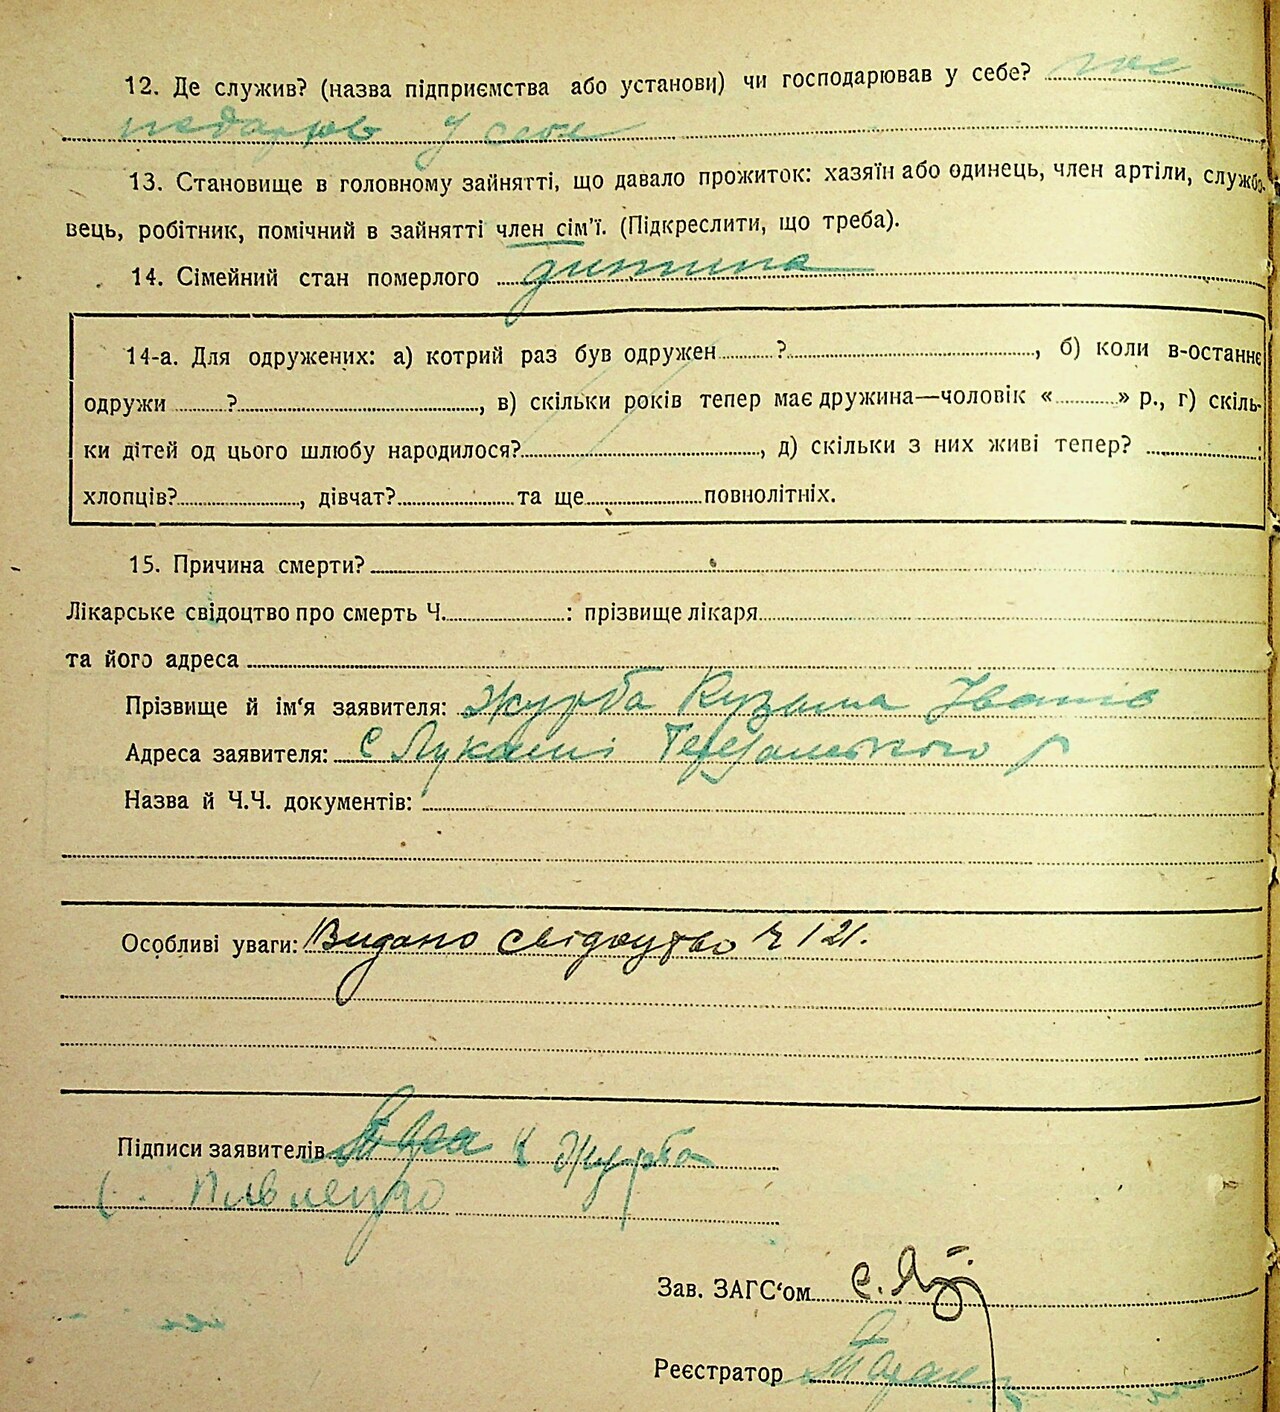 12. Де служив? (назва підприємства або установи) чи господарював у себе? гос-
подарюв у себе
13. Становище в головному зайнятті, що давало прожиток: хазяїн або одинець, член артіли, службо-
вець, робітник, помічний в зайнятті член сім'ї. (Підкреслити, що треба).
14. Сімейний стан померлого дитина
14-а. Для одружених: а) котрий раз був одружен ?, б) коли в-останнє
одружи ?, в) скільки років тепер має дружина—чоловік « » р., г) скіль-
ки дітей од цього шлюбу народилося?, д) скільки з них живі тепер? :
хлопців?, дівчат? та ще повнолітніх.
15. Причина смерти?
Лікарське свідоцтво про смерть Ч. : прізвище лікаря
та його адреса
Прізвище й ім'я заявителя: Журба Кузьма Іванів
Адреса заявителя: с Лукаші
Назва й Ч.Ч. документів:
Особливі уваги: Видано свідоцтво Ч 121.
Підписи заявителів К Журба
Зав. ЗАГС'ом С.
Реєстратор